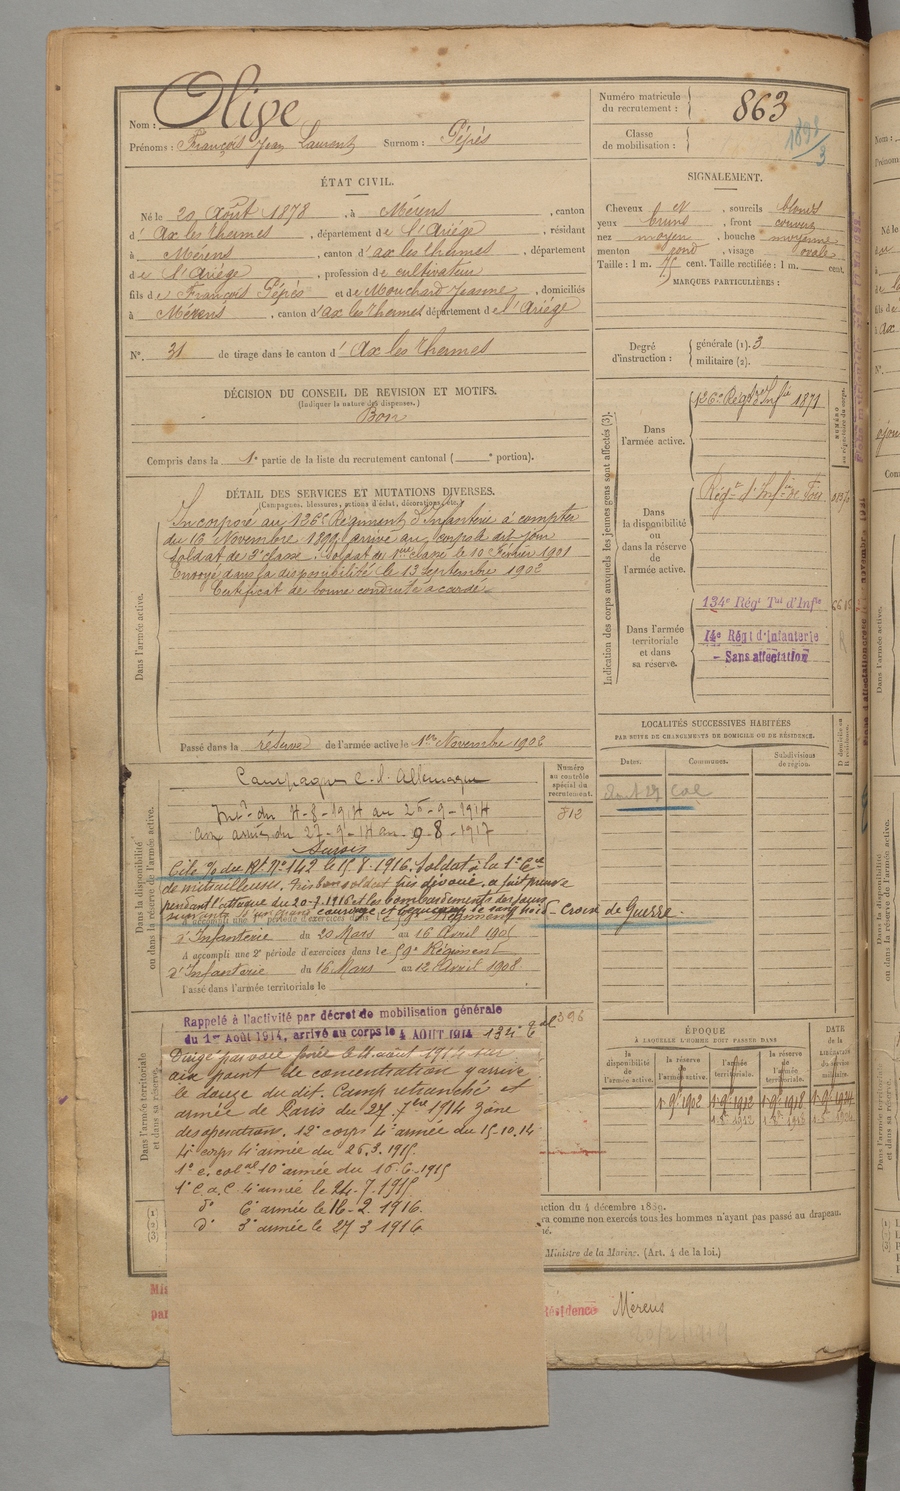 Nom : Olive
Prénoms : François Jean Laurent Surnom : Pépés
Numéro matricule du recrutement : 863
Classe de mobilisation : 1898/3
ÉTAT CIVIL.
Né le 20 Août 1878, à Mérens, canton
d' Ax les thermes, département de l'Ariége, résidant
à Mérens, canton d' ax les thermes, département
de l'Ariége, profession de cultivateur
fils de François Pépés et de Mouchard Jeanne, domiciliés
à Mérens, canton d' ax les thermes département de l'Ariége
N°. 31 de tirage dans le canton d' Ax les thermes
SIGNALEMENT.
Cheveux et, sourcils blonds
yeux bruns, front couvert
nez moyen, bouche moyenne
menton rond, visage ovale
Taille : 1 m. 75 cent. Taille rectifiée : 1 m. cent.
MARQUES PARTICULIÈRES :
Degré d'instruction : générale (1). 3
militaire (2).
DÉCISION DU CONSEIL DE REVISION ET MOTIFS.
(Indiquer la nature des dispenses.)
Bon
Compris dans la 1e partie de la liste du recrutement cantonal ( e portion).
DÉTAIL DES SERVICES ET MUTATIONS DIVERSES.
(Campagnes, blessures, actions d'éclat, décorations, etc.)
Dans l'armée active.
Incorporé au 136e Régiment d'Infanterie à compter
du 16 Novembre 1899 arrivé au corps le dit jour
Soldat de 2e classe. Soldat de 1ère classe le 10 Février 1901
Envoyé dans la disponibilité le 13 Septembre 1902
Certificat de bonne conduite accordé.
Passé dans la réserve de l'armée active le 1er Novembre 1902
Indication des corps auxquels les jeunes gens sont affectés (3).
Dans l'armée active.
136e Régt d'Infie 1871
Dans la disponibilité ou dans la réserve de l'armée active.
Régt d'Infie de Foix
Dans l'armée territoriale et dans sa réserve.
134e Régt Tal d'Infie
14e Régt d'infanterie
- Sans affectation
LOCALITÉS SUCCESSIVES HABITÉES
PAR SUITE DE CHANGEMENTS DE DOMICILE OU DE RÉSIDENCE.
Dates. Communes. Subdivisions de région.
Dans la disponibilité ou dans la réserve de l'armée active.
Campagne c. l'Allemagne
Intr du 4-8-1914 au 26-9-1914
aux armées du 27-9-14 au 9-8-1917
Sursis
Numéro au contrôle spécial du recrutement.
812
Cité % du Rt N° 142 le 15.8.1916. Soldat à la 1e Cie
de mitrailleuses, très bon soldat très dévoué, a fait preuve
pendant l'attaque du 20-7-1916 et les bombardements des jours
suivants d'un grand courage et de sang froid - Croix de Guerre.
A accompli une 1e période d'exercices dans le 59e Régiment
d'Infanterie du 20 Mars au 16 Avril 1905
A accompli une 2e période d'exercices dans le 59e Régiment
d'Infanterie du 16 Mars au 12 Avril 1908.
Passé dans l'armée territoriale le
Dans l'armée territoriale et dans sa réserve.
Rappelé à l'activité par décret de mobilisation générale
du 1er Août 1914, arrivé au corps le 4 AOUT 1914 134e tal
396
Dirigé par voie ferrée le 11 août 1914 sur
aix point de concentration y arrivé
le douze du dit. Camp retranché et
armée de Paris du 27. 7bre 1914 zône
des opérations. 12e corps 4e armée du 15.10.14
4e corps 4e armée du 26.3.1915.
1e c. colal 10e armée du 16-6-1915
1e C.a.C. 4e armée le 24-7-1915
do 6e armée le 16-2.1916.
do 3e armée le 27 3 1916
ÉPOQUE
À LAQUELLE L'HOMME DOIT PASSER DANS
la disponibilité de l'armée active.
la réserve de l'armée active.
l'armée territoriale.
la réserve de l'armée territoriale.
DATE de la LIBÉRATION du service militaire.
1. 9bre 1902 1. 9bre 1912 1. 9bre 1918 1. 9bre 1924
ction du 4 décembre 1889.
ra comme non exercés tous les hommes n'ayant pas passé au drapeau.
Ministre de la Marine. (Art. 4 de la loi.)
Résidence Mérens